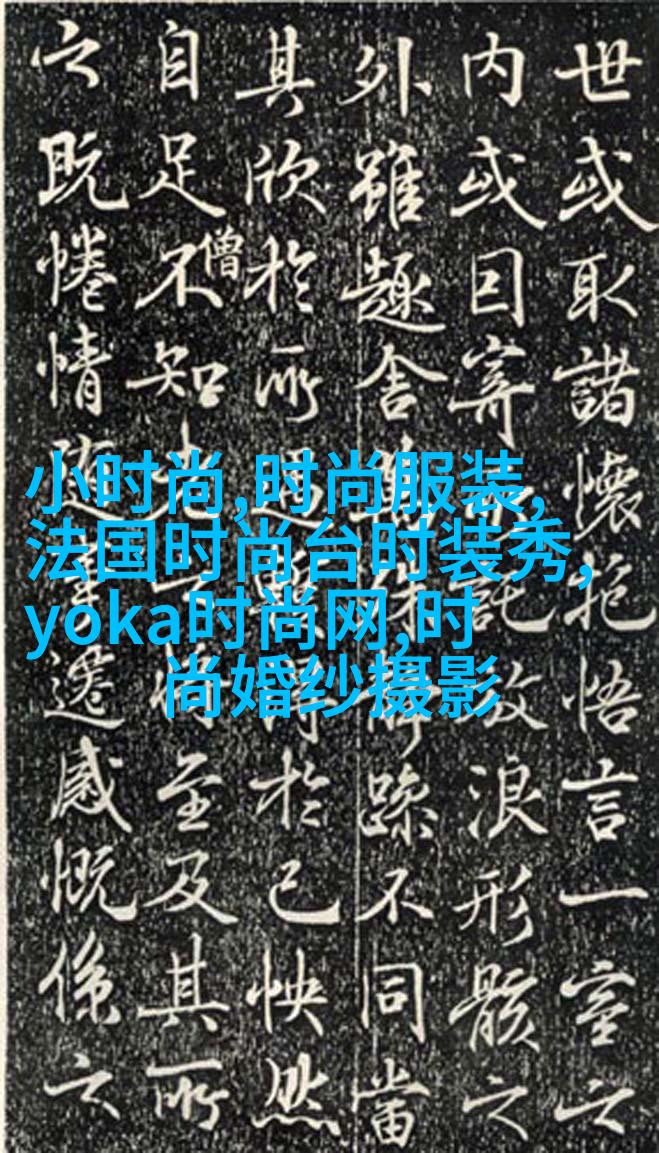 世或取諸懷抱悟言一室之
内或因寄託放浪形骸之
外雖趣舍殊躁不同當
其欣於所遇得於己怏然
僧
自足不知老至及其所
之既惓情隨遷感慨係之
小时尚,时尚服装,
法国时尚台时装秀,
yoka时尚网,时
尚婚纱摄影